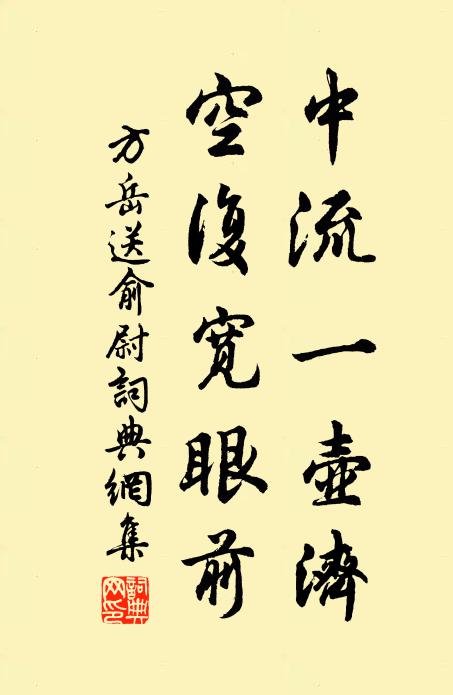 中流一壺濟
空復寬眼前
方岳送俞尉詞典網集
詞典网印